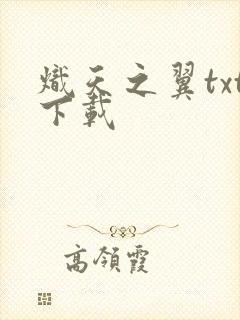 熾天之翼txt
下載
高領霞